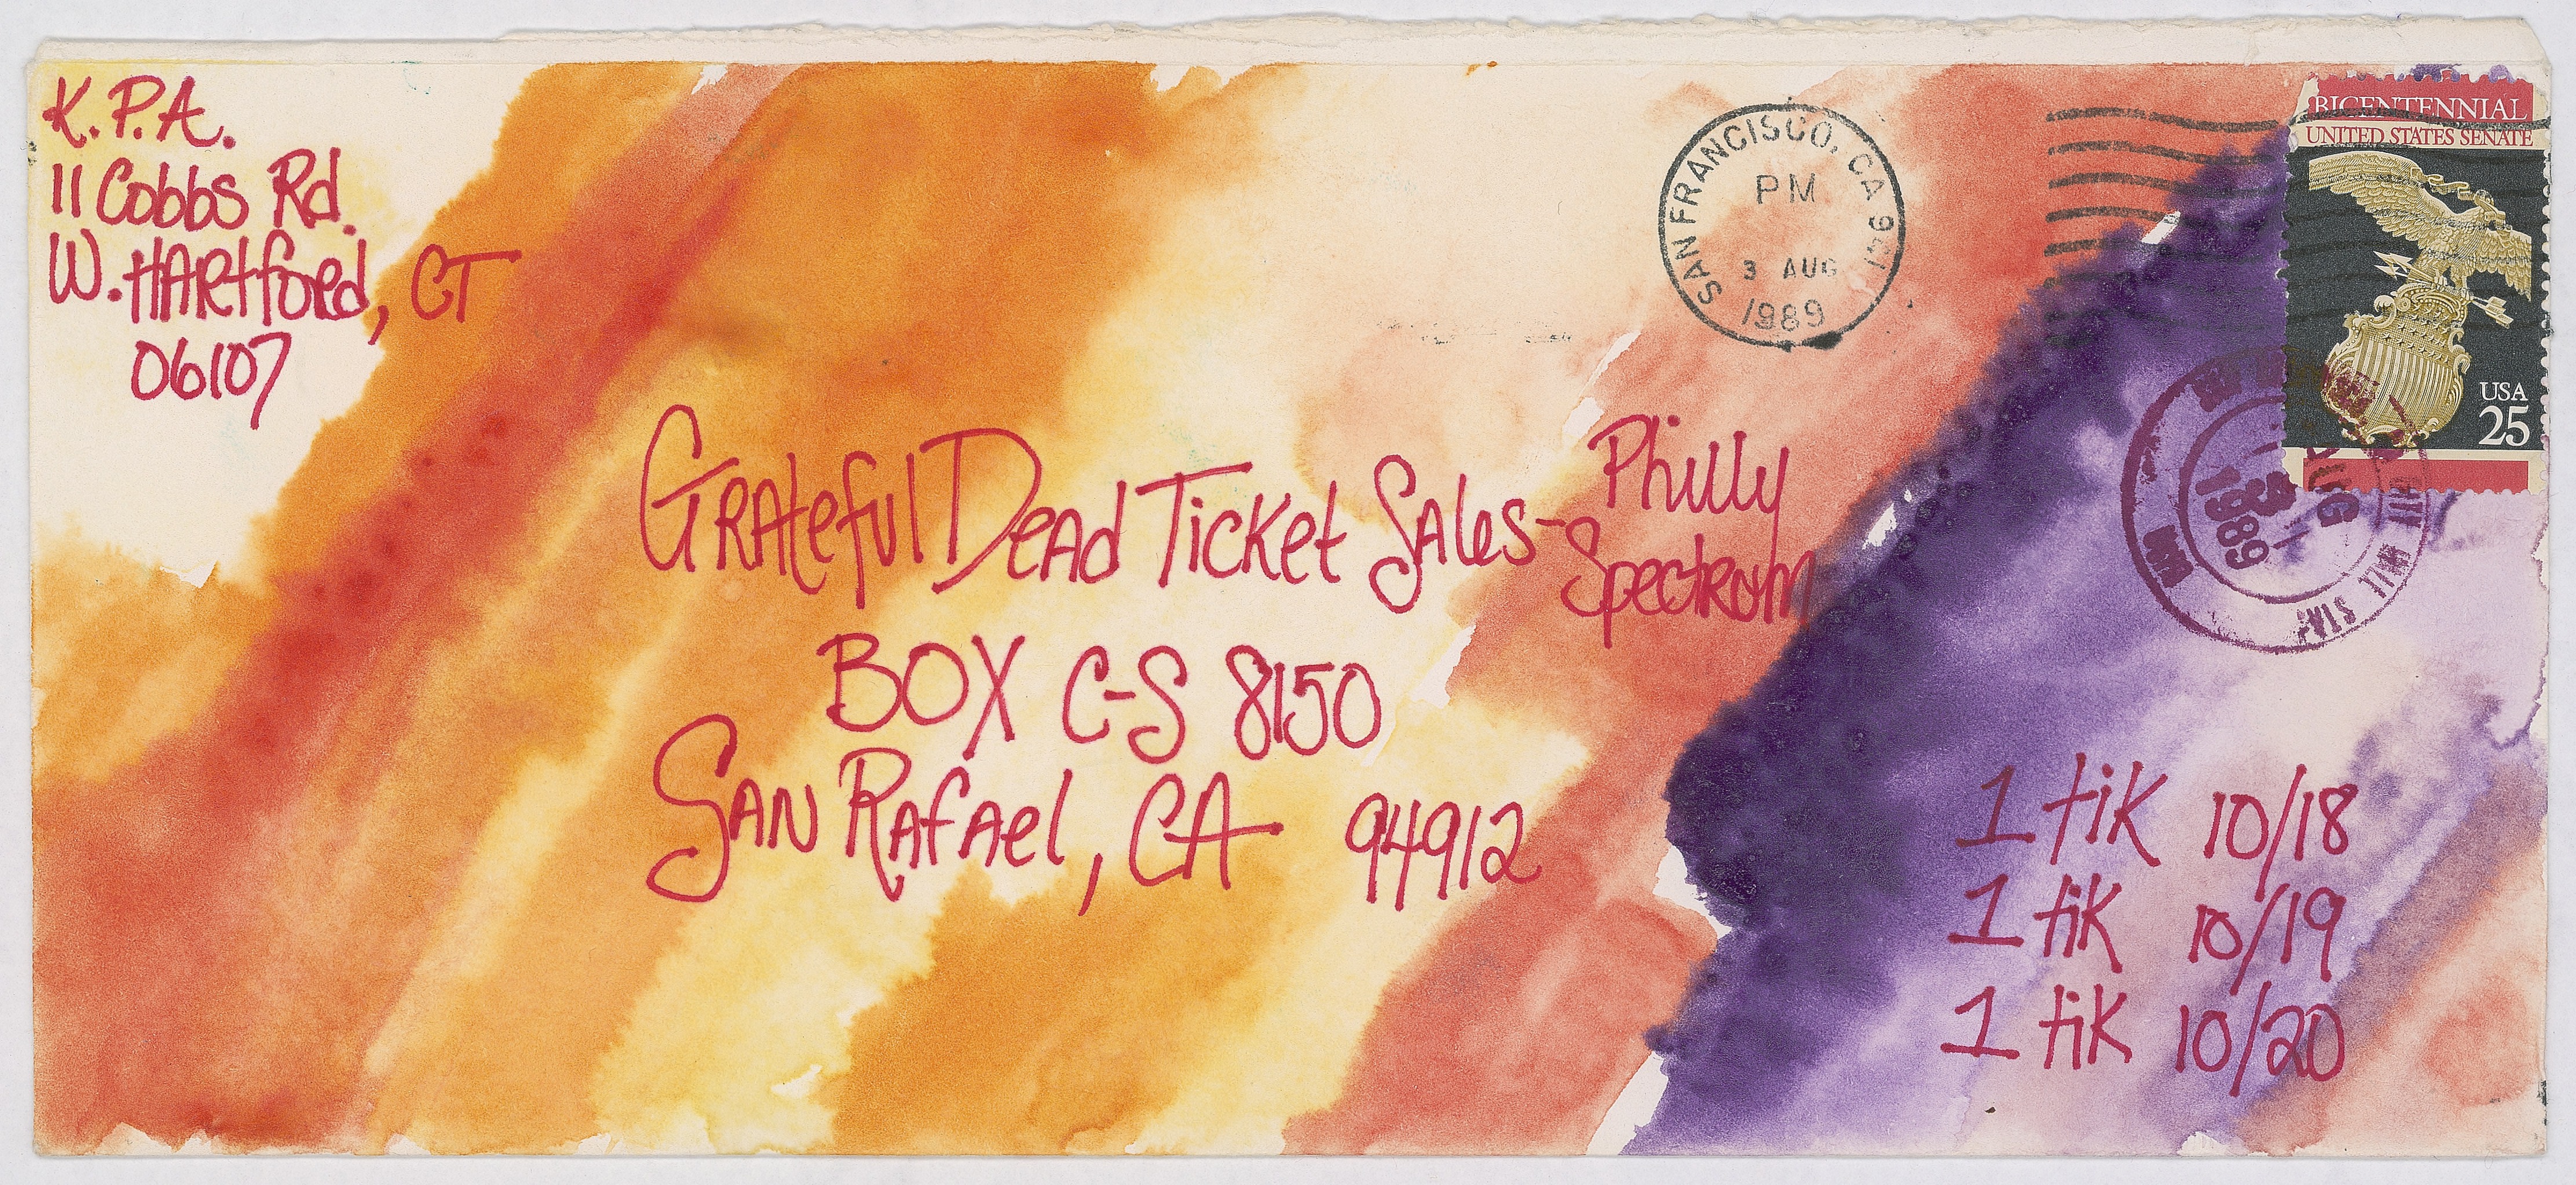 K.P.A.
11 Cobbs Rd.
W. HARtford, CT
06107
SAN FRANCISCO, CA
PM
3 AUG
1989
BICENTENNIAL
UNITED STATES SENATE
USA
25
AUG
3
1989
GRAteful DeAd Ticket SAles - Philly
Spectrum
BOX C-S 8150
SAN RAfAel, CA 94912
1 tik 10/18
1 tik 10/19
1 tik 10/20